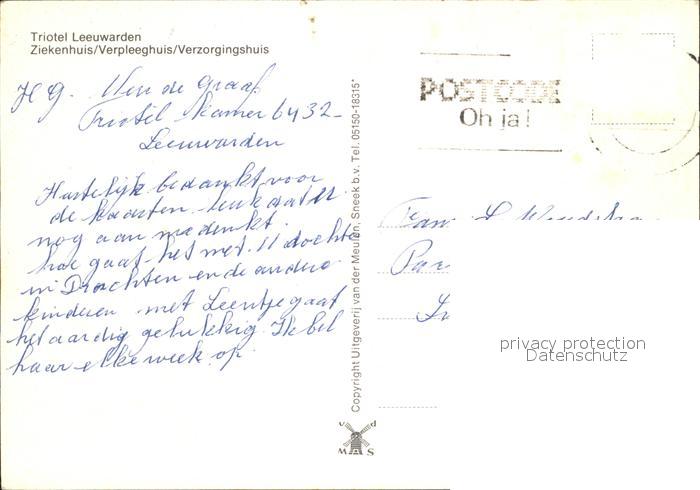 Triotel Leeuwarden
Ziekenhuis/Verpleeghuis/Verzorgingshuis
H G. v den de Graaf
Triotel kamer 6432-
Leeuwarden
Hartelijk bedankt voor
de kaarten. leuk dat U
nog aan me denkt.
hoe gaat het met U dochter
in Drachten en de andere
kinderen met Leentje gaat
het aardig gelukkig. Ik bel
haar elke week op.
Copyright Uitgeverij van der Meulen, Sneek b.v. Tel. 05150-18315*
POSTCODE
Oh ja!
Fam
v d
M S
privacy protection
Datenschutz